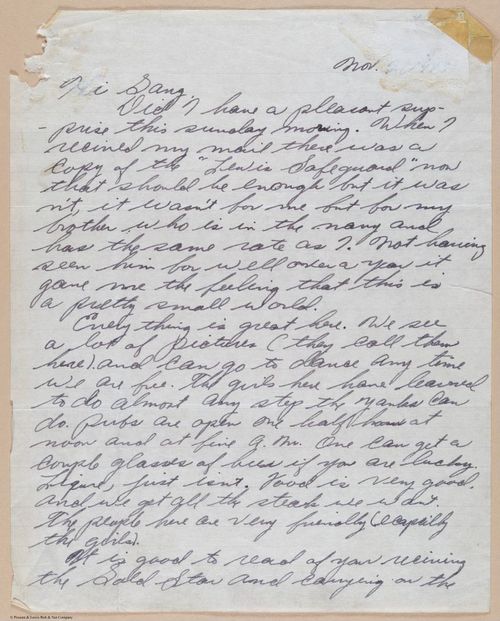 Nov.
Hi Gang,
Did I have a pleasant sup-
-prise this sunday morning. When I
recived my mail there was a
copy of the "Lewis Safeguard" now
that should be enough but it was
n't, it wasn't for me but for my
brother who is in the navy and
has the same rate as I. Not having
seen him for well over a year it
gave me the feeling that this is
a pretty small world.
Every thing is great here. We see
a lot of pictures (they call them
here) and can go to dance any time
we are free. The girls here have learned
to do almost any step the Yanks can
do. Pubs are open one half hour at
noon and at five P.M. One can get a
couple glasses of beer if you are lucky.
Liquor just isn't. Food is very good.
And we get all the steak we want.
The people here are very friendly (especially
the girls).
It is good to read of your reciving
the Gold Star and carrying on the
© Provost & Lewis Bolt & Nut Company